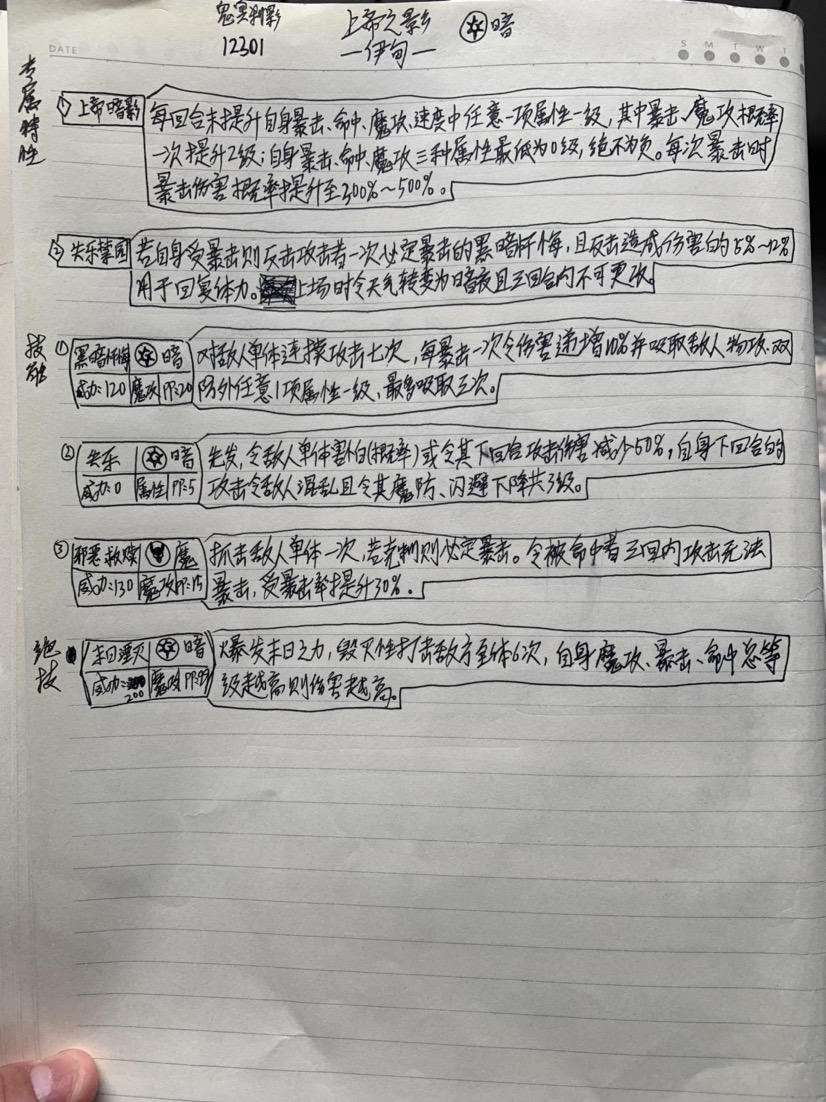 鬼冥刹影 上帝之影 暗
12301 —伊甸—
DATE S M T W T
专属特性
① 上帝暗影 每回合末提升自身暴击、命中、魔攻、速度中任意一项属性一级，其中暴击、魔攻概率
一次提升2级；自身暴击、命中、魔攻三种属性最低为0级，绝不为负。每次暴击时
暴击伤害概率提升至300%～500%。
② 失乐禁园 若自身受暴击则反击攻击者一次必定暴击的黑暗忏悔，且反击造成伤害的5%～12%
用于回复体力。上场时令天气转变为暗夜且三回合内不可更改。
技能
① 黑暗忏悔 暗 对敌人单体连续攻击七次，每暴击一次令伤害递增10%并吸取敌人物攻、双
威力:120 魔攻 PP:20 防外任意1项属性一级，最多吸取三次。
② 失乐 暗 先发，令敌人单体害怕(概率)或令其下回合攻击伤害减少50%，自身下回合的
威力:0 属性 PP:5 攻击令敌人混乱且令其魔防、闪避下降共3级。
③ 邪恶救赎 魔 抓击敌人单体一次，若克制则必定暴击。令被命中者三回内攻击无法
威力:130 魔攻 PP:15 暴击，受暴击率提升30%。
绝技
末日湮灭 暗 爆发末日之力，毁灭性打击敌方全体6次，自身魔攻、暴击、命中总等
威力:200 魔攻 级越高则伤害越高。